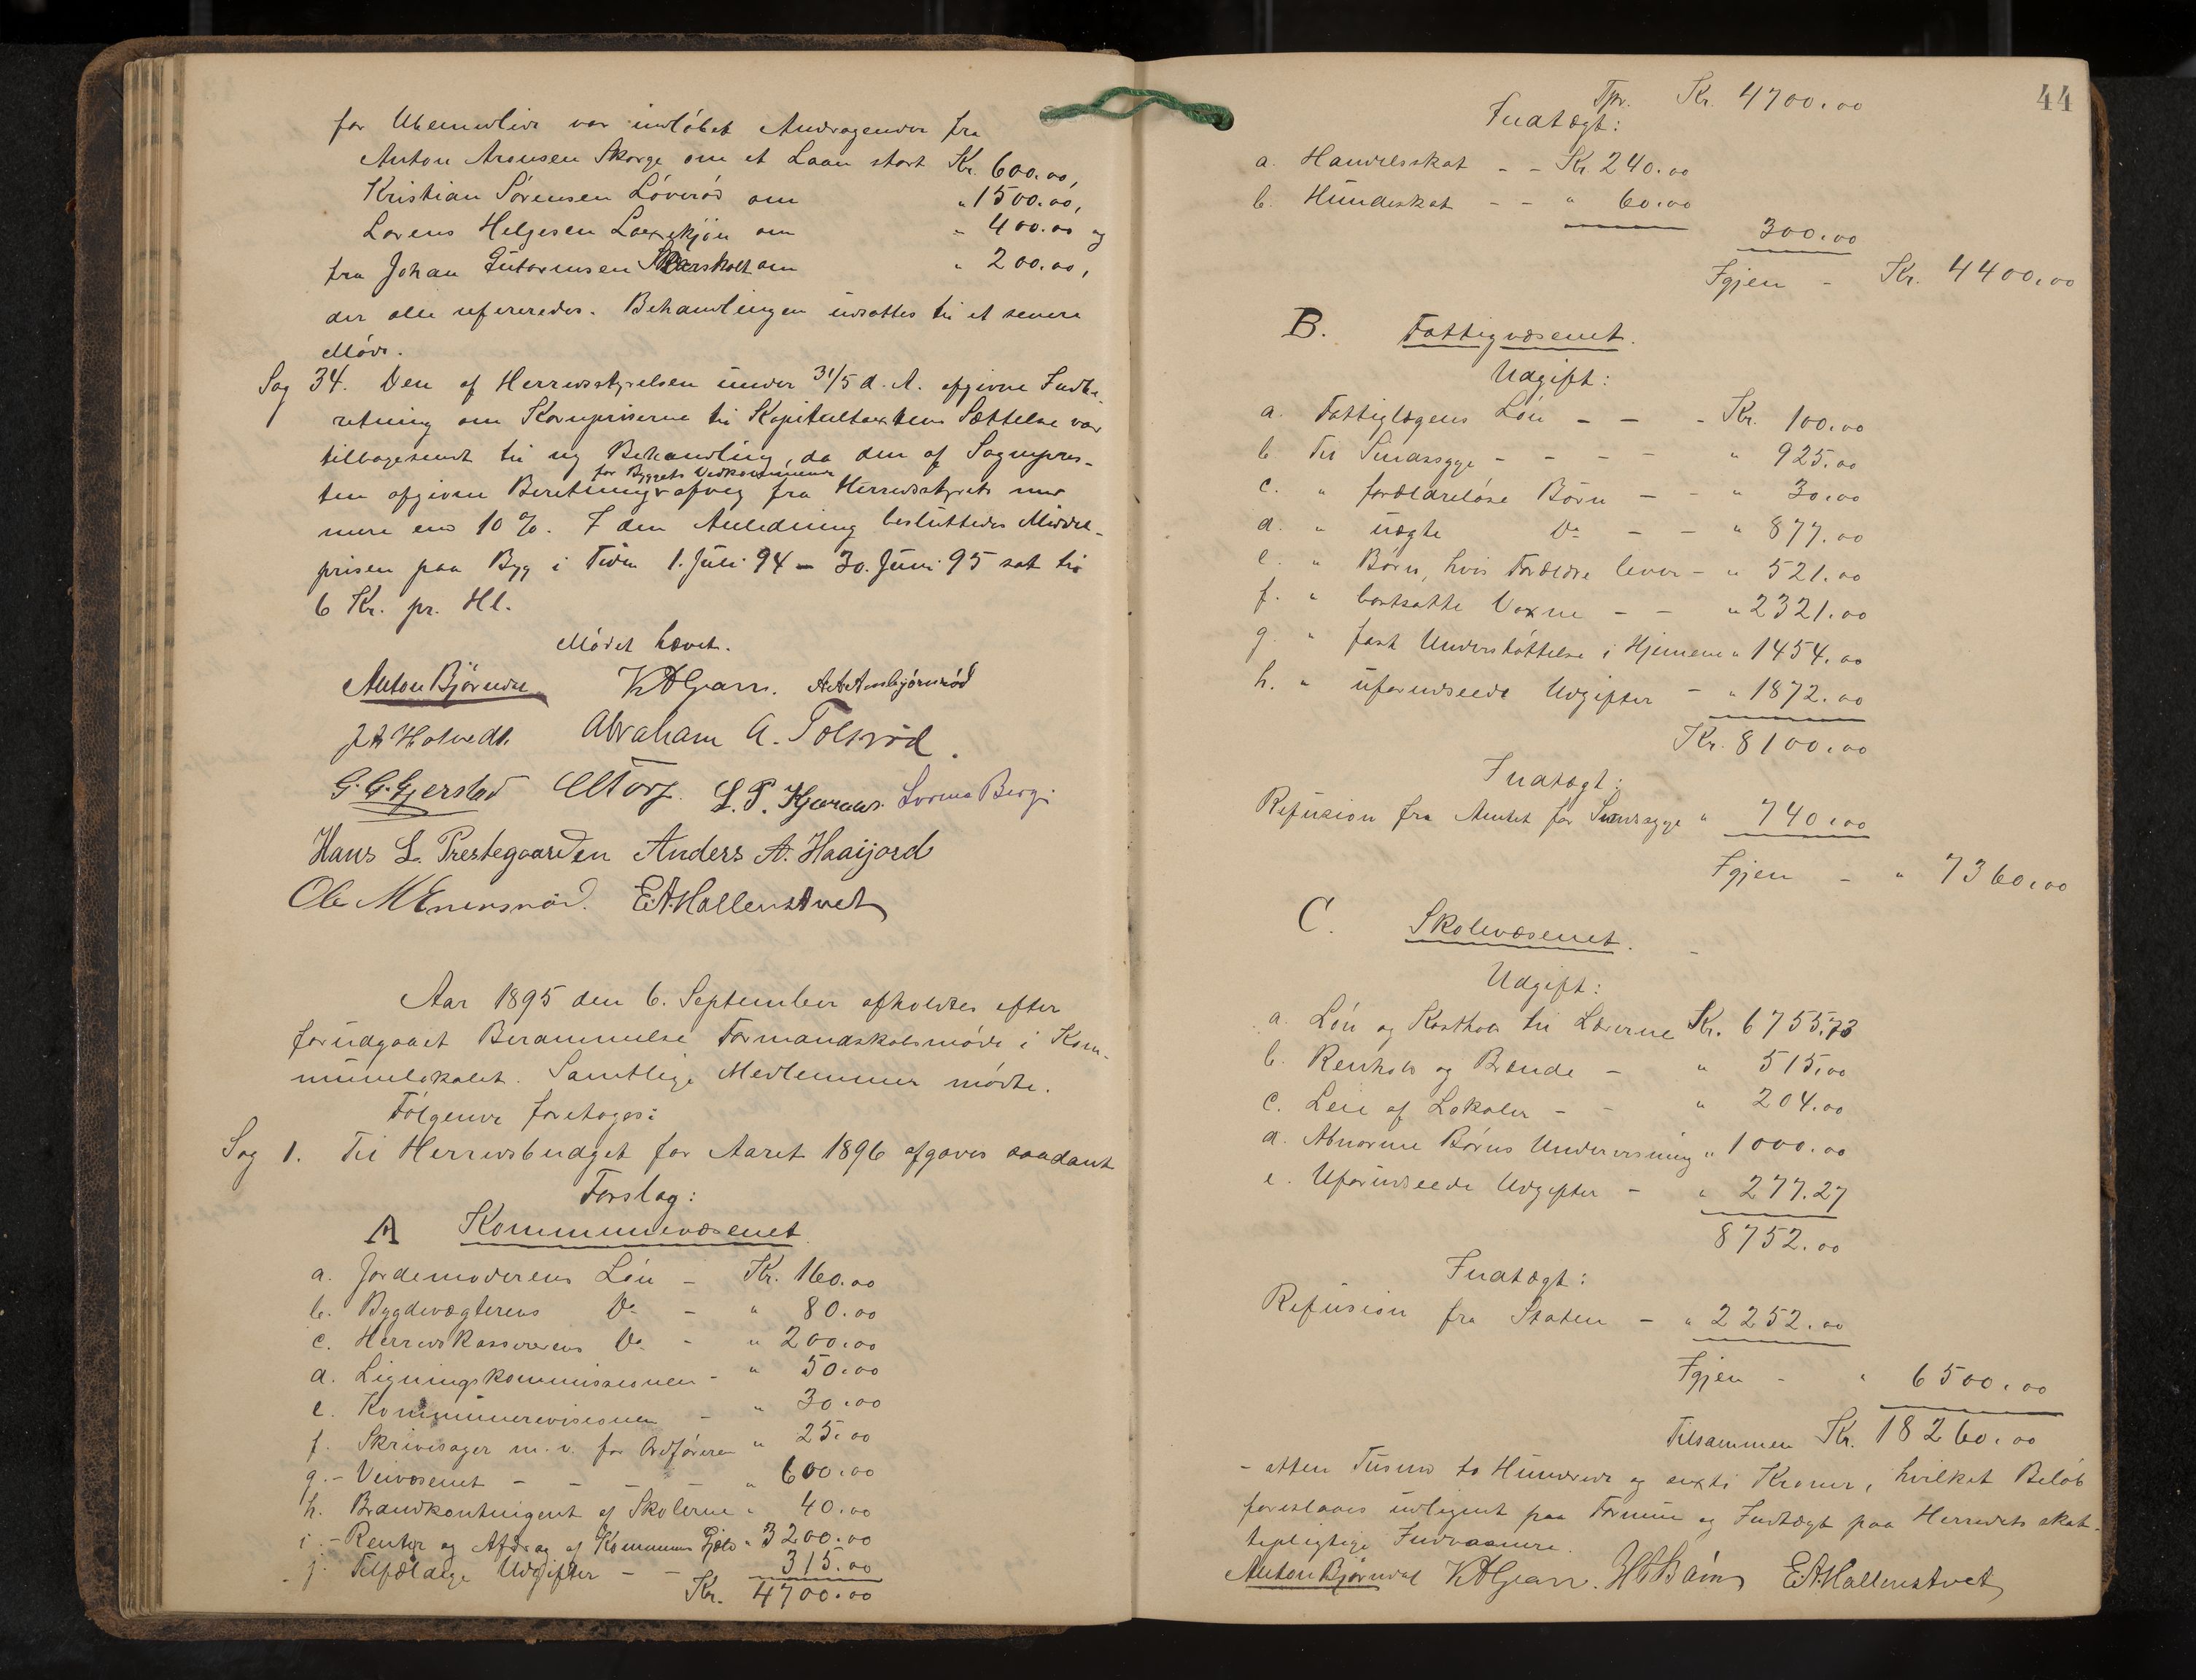 for Ubemidlede var indløbet Andragender fra
Anton Aronsen Skorge om et Laan stort Kr. 600.00,
Kristian Sørensen Løverød om " 1500.00,
Lorens Helgesen om " 400.00 og
fra Johan Gutormsen om " 200.00,
der alle refereredes. Behandlingen udsattes til et senere
Møde.
Sag 34. Den af Herredsstyrelsen under 31/5 d. A. afgivne Indbe-
retning om Kornpriserne til Kapitaltaxtens Sættelse var
tilbagesendt til ny Behandling, da den af Sognepres-
for Byggets Vedkommende
ten afgivne Beretning afveg fra Herredsstyrets med
mere end 10 %. I den Anledning besluttedes Middel-
prisen paa Byg i Tiden 1. Juli 94 - 30. Juni 95 sat til
6 Kr. pr. Hl.
Mødet hævet.
Anton Bjørndal K A Gran. A. A. Ambjørnrød
J A Hotvedt. Abraham A. Tolsrød.
G. C. Gjerstad C Torp. L. P. Hjaraas. Lorens Berg.
Hans L. Prestegaarden Anders A. Haaijord
Ole M Enersrød. E. A. Hallenstvet
Aar 1895 den 6. September afholdtes efter
forudgaaet Berammelse Formandskabsmøde i Kom-
munelokalet. Samtlige Medlemmer mødte.
Følgende foretoges:
Sag 1. Til Herredsbudget for Aaret 1896 afgaves saadant
Forslag:
A Kommunevæsenet
a. Jordemoderens Løn - Kr. 160.00
b. Bygdevægterens Do - " 80.00
c. Herredskassererens Do - " 200.00
d. Ligningskommissionen - " 50.00
e. Kommunerevisionen - " 30.00
f. Skrivesager m. v. for Ordføreren " 25.00
g. - Veivæsenet - - - - " 600.00
h. Brandkontingent af Skolerne " 40.00
i. - Renter og Afdrag af Kommunens Gjæld " 3200.00
j. Tilfældige Udgifter - - 315.00
Kr. 4700.00
44
Tpr. Kr. 4700.00
Indtægt:
a. Handelsskat - - Kr 240.00
b. Hundeskat - - " 60.00
300.00
Igjen - Kr. 4400.00
B. Fattigvæsenet.
Udgift:
a. Fattiglægens Løn - - - Kr. 100.00
b. Til Sindssyge - - - - " 925.00
c. " forældreløse Børn - - " 30.00
d. " uægte Do - - " 877.00
e. " Børn, hvis Forældre lever - " 521.00
f. " bortsatte Voxne - - " 2321.00
g. " fast Understøttelse i Hjemmene " 1454.00
h. " uforudseede Udgifter - " 1872.00
Kr. 8100.00
Indtægt:
Refusion fra Amtet for Sindssyge " 740.00
Igjen - " 7360.00
C. Skolevæsenet.
Udgift:
a. Løn og Kosthold til Lærerne Kr. 6755,73
b. Renhold og Brænde - " 515,00
c. Leie af Lokaler - - " 204.00
d. Abnorme Børns Undervisning " 1000.00
e. Uforudseede Udgifter - " 277.27
8752.00
Indtægt:
Refusion fra Staten - " 2252.00
Igjen - " 6500.00
Tilsammen Kr. 18260.00
- atten Tusend to Hundrede og sexti Kroner, hvilket Beløb
foreslaaes udlignet paa Formue og Indtægt paa Herredets skat-
tepligtige Indvaanere.
Anton Bjørndal K A Gran. E. A. Hallenstvet